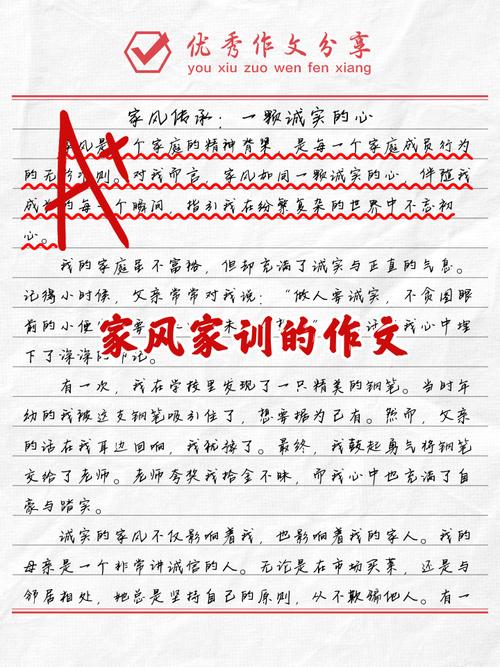 优秀作文分享
you xiu zuo wen fen xiang
家风传承：一颗诚实的心
家风是一个家庭的精神背景，是每一个家庭成员行为
的无形准则。对我而言，家风如同一颗诚实的心，伴随我
成长的每一个瞬间，指引我在纷繁复杂的世界中不忘初
心。
我的家庭虽不富裕，但却充满了诚实与正直的气息。
记得小时候，父亲常常对我说：“做人要诚实，不贪图眼
前的小便
家风家训的作文
我心中埋
下了深深
有一次，我在学校里发现了一只精美的钢笔。当时年
幼的我被这支钢笔吸引住了，想要据为己有。然而，父亲
的话在我耳边回响，我犹豫了。最终，我鼓起勇气将钢笔
交给了老师。老师夸奖我拾金不昧，而我心中也充满了自
豪与踏实。
诚实的家风不仅影响着我，也影响着我的家人。我的
母亲是一个非常讲诚信的人。无论是在市场买菜，还是与
邻居相处，她总是坚持自己的原则，从不欺骗他人。有一
A+